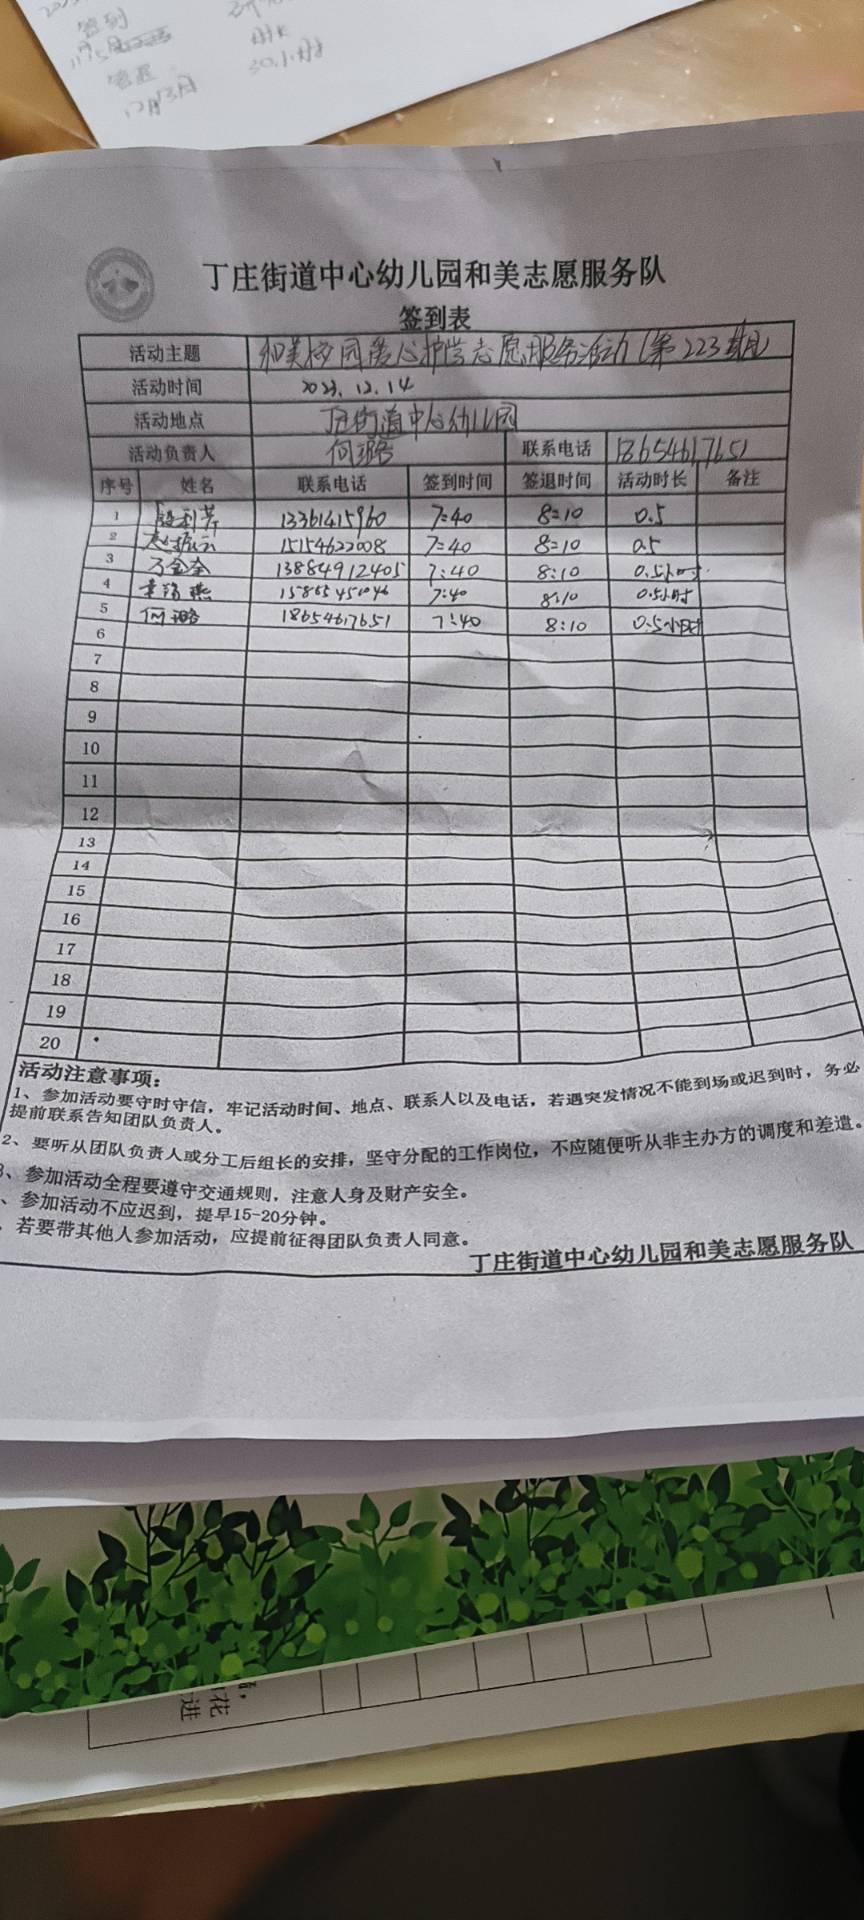 签到
12月13日
丁庄街道中心幼儿园和美志愿服务队
签到表
活动主题 和美校园爱心护学志愿服务活动(第223期)
活动时间 2023.12.14
活动地点 丁庄街道中心幼儿园
活动负责人 何璐 联系电话 18654617651
序号 姓名 联系电话 签到时间 签退时间 活动时长 备注
1 13361415960 7:40 8:10 0.5
2 15154622008 7:40 8:10 0.5
3 13884912405 7:40 8:10 0.5小时
4 7:40 8:10 0.5小时
5 何璐 18654617651 7:40 8:10 0.5小时
6
7
8
9
10
11
12
13
14
15
16
17
18
19
20
活动注意事项：
1、参加活动要守时守信，牢记活动时间、地点、联系人以及电话，若遇突发情况不能到场或迟到时，务必
提前联系告知团队负责人。
2、要听从团队负责人或分工后组长的安排，坚守分配的工作岗位，不应随便听从非主办方的调度和差遣。
3、参加活动全程要遵守交通规则，注意人身及财产安全。
、参加活动不应迟到，提早15-20分钟。
、若要带其他人参加活动，应提前征得团队负责人同意。
丁庄街道中心幼儿园和美志愿服务队
花
进